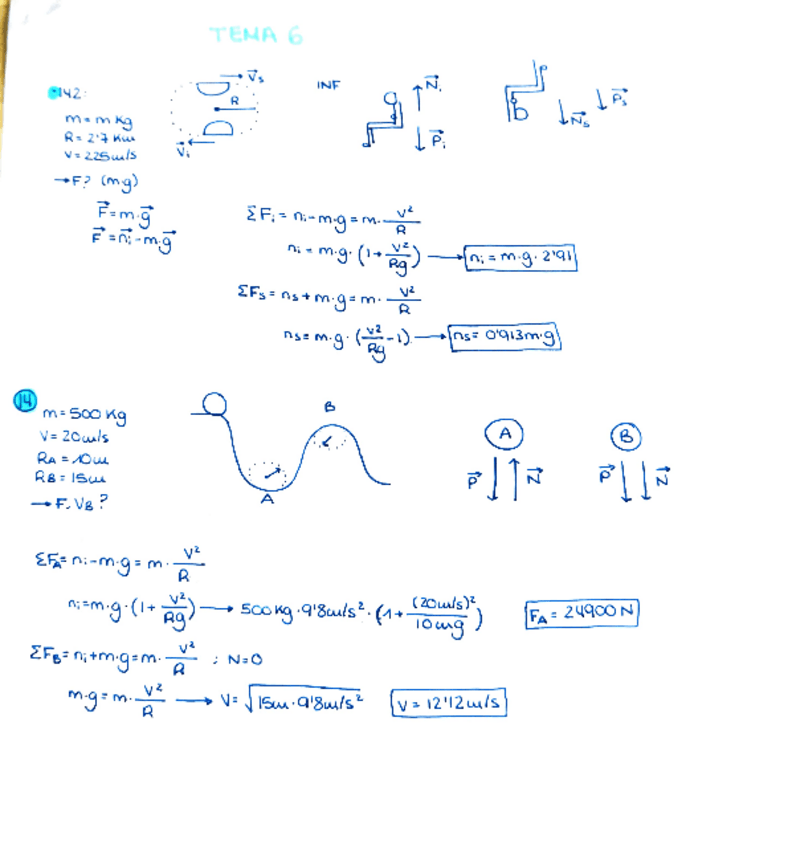 TEMA 6
142:
m = m Kg
R = 2'7 Km
V = 225m/s
→ F? (m·g)
F⃗ = m·g⃗
F⃗ = n⃗ᵢ - m·g⃗
V⃗s
R
V⃗ᵢ
INF
N⃗ᵢ
P⃗ᵢ
N⃗s
P⃗s
ΣFᵢ = nᵢ - m·g = m · V²/R
nᵢ = m·g · (1 + V²/Rg) → nᵢ = m·g · 2'91
ΣFs = ns + m·g = m · V²/R
ns = m·g · (V²/Rg - 1) → ns = 0'913 m·g
14
m = 500 Kg
V = 20m/s
RA = 10m
RB = 15m
→ F. VB?
A
B
A
P⃗ N⃗
B
P⃗ N⃗
ΣFA = nᵢ - m·g = m · V²/R
nᵢ = m·g · (1 + V²/Rg) → 500Kg · 9'8m/s² · (1 + (20m/s)²/10mg) FA = 24900 N
ΣFB = nᵢ + m·g = m · V²/R ; N=0
m·g = m · V²/R → V = √15m · 9'8m/s² V = 12'12 m/s